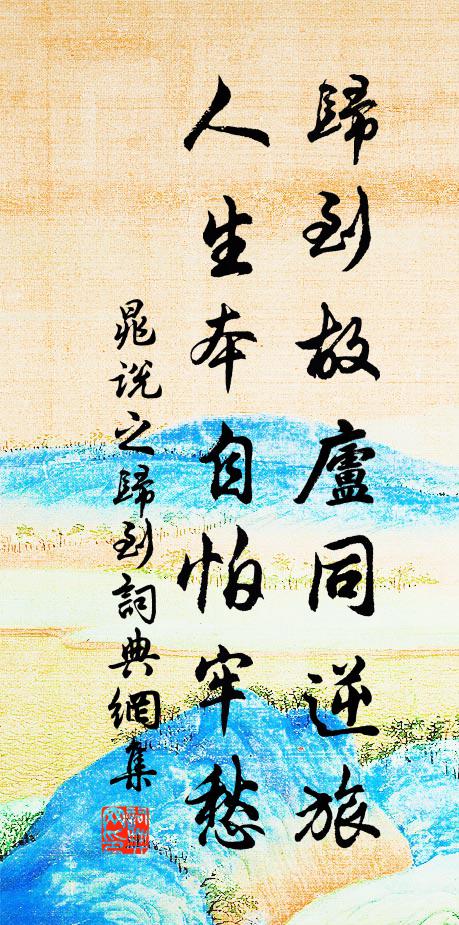 歸到故廬同逆旅
人生本自怕牢愁
晁說之歸到詞典網集